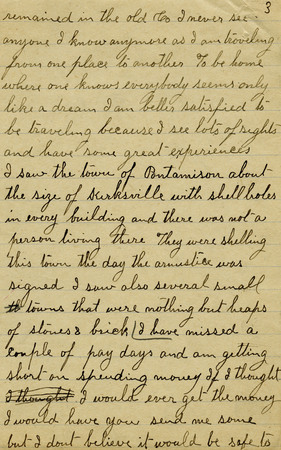 3
remained in the old Co I never see
anyone I know anymore as I am traveling
from one place to another To be home
where one knows everybody seems only
like a dream I am better satisfied to
be traveling because I see lots of sights
and have some great experiences
I saw the town of Bntamison about
the size of Kirksville with shell holes
in every building and there was not a
person living there They were shelling
this town the day the armistice was
signed I saw also several small
towns that were nothing but heaps
of stones & brick I have missed a
couple of pay days and am getting
short on spending money If I thought
I thought I would ever get the money
I would have you send me some
but I dont believe it would be safe to